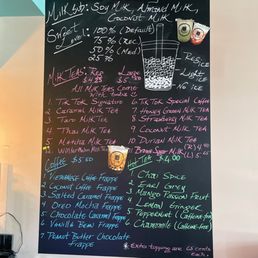 Milk Sub: Soy Milk, Almond Milk,
Coconut Milk
Sweet Level:
100% (Default)
75% (Rec)
50% (Med)
25%
Reg Ice
Light
No Ice
Milk Teas: Reg Large
All Milk Teas Come
1. Tik Tok Signature
2. Caramel Milk Tea
3. Taro Milk Tea
4. Thai Milk Tea
5. Matcha Milk Tea
6. Tik Tok Special Coffee
7. Honey Green Milk Tea
8. Strawberry Milk Tea
9. Coconut Milk Tea
10. Durian Milk Tea
11. Brown Sugar Milk
Coffee $5.50
1. Vietnamese Coffee Frappe
2. Coconut Coffee Frappe
3. Salted Caramel Frappe
4. Oreo Mocha Frappe
5. Chocolate Caramel Frappe
6. Vanilla Bean Frappe
7. Peanut Butter Chocolate
Frappe
Hot Tea $4.00
1. Chai Spice
2. Earl Grey
3. Mango Passion Fruit
4. Lemon Ginger
5. Peppermint (Caffeine-free)
6. Chamomile (Caffeine-free)
* Extra topping are 65 cents
each.